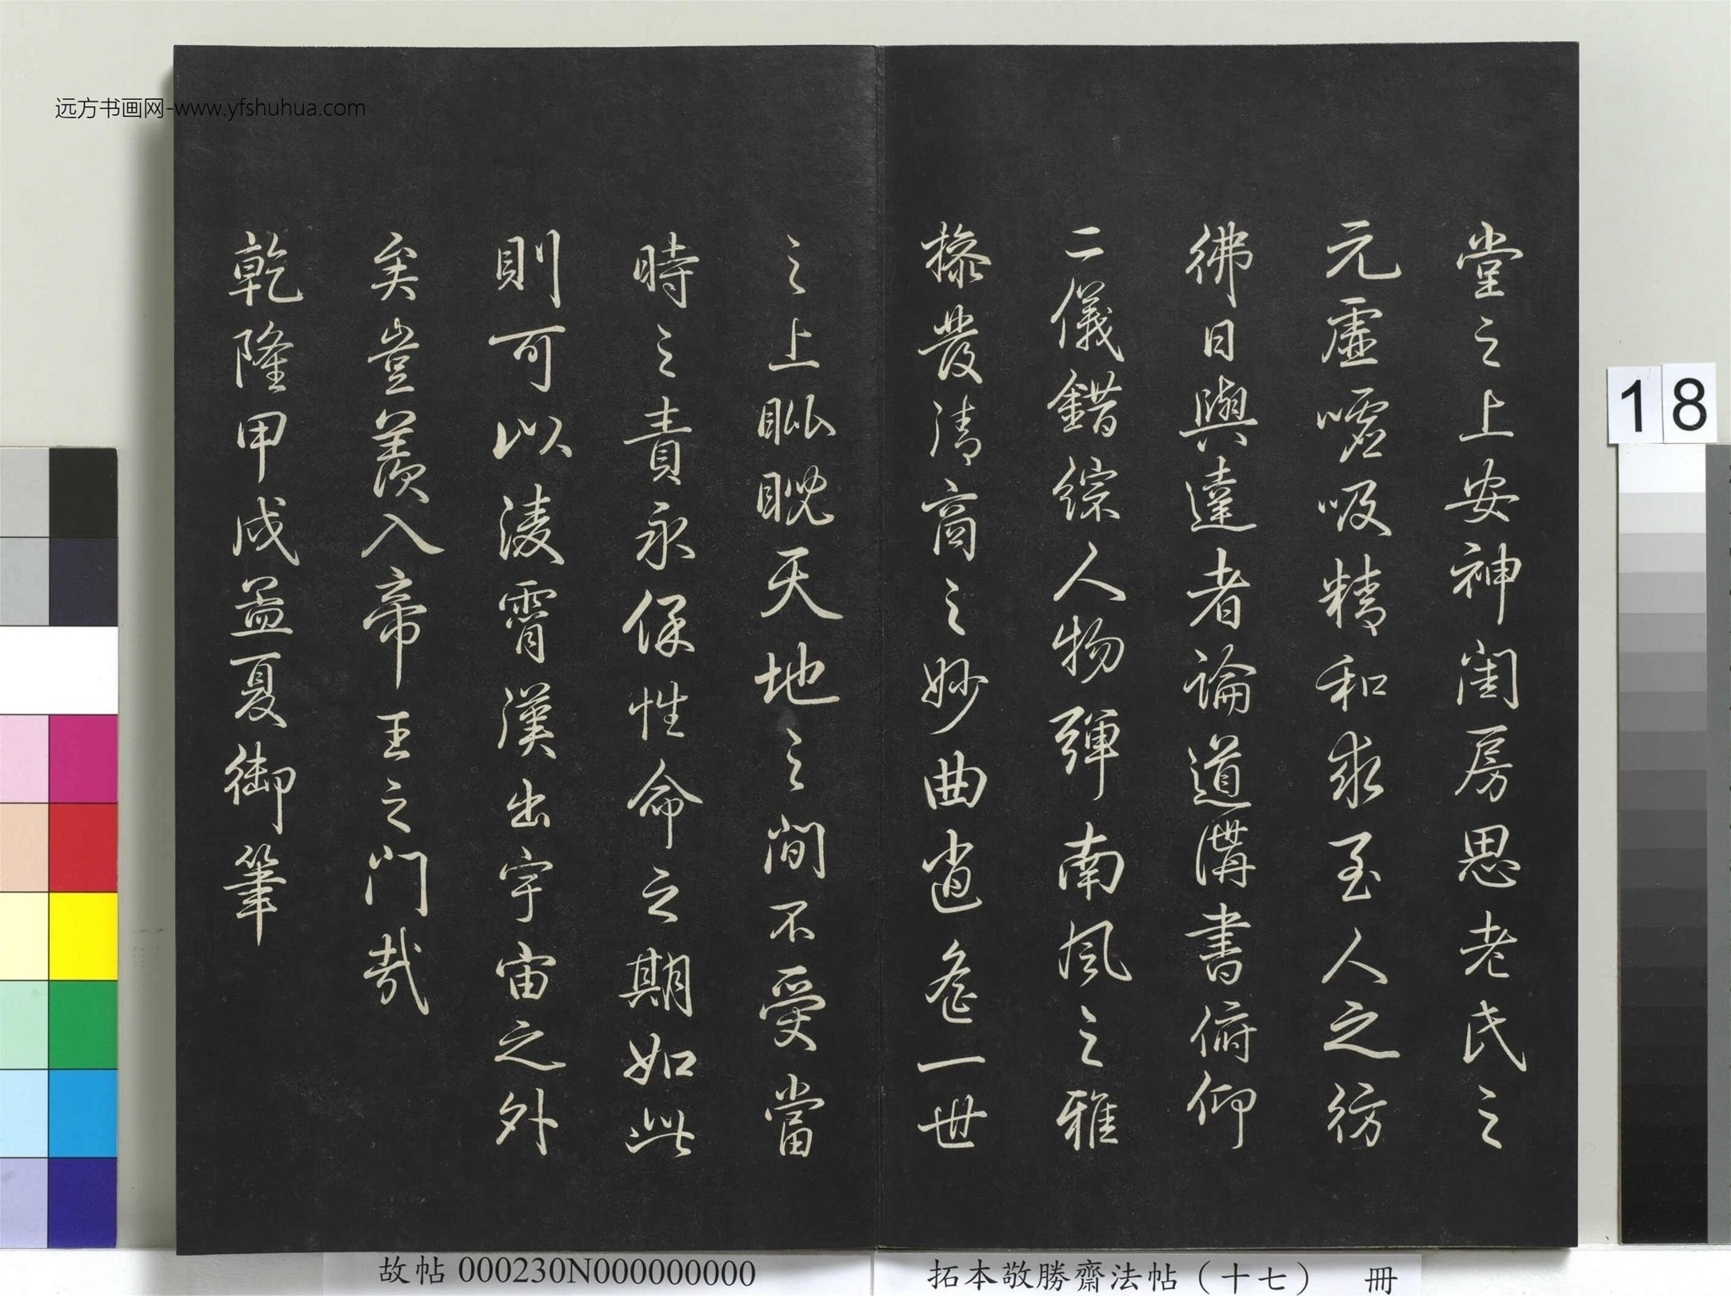 远方书画网-www.yfshuhua.com
堂之上安神閨房思老氏之
元虛噓吸精和求至人之彷
彿日與達者論道講書俯仰
二儀錯綜人物彈南風之雅
操發清商之妙曲逍遙一世
之上睥睨天地之間不受當
時之責永保性命之期如此
則可以淩霄漢出宇宙之外
矣豈羨入帝王之門哉
乾隆甲戌孟夏御筆
18
故帖 000230N000000000
拓本敬勝齋法帖（十七） 冊